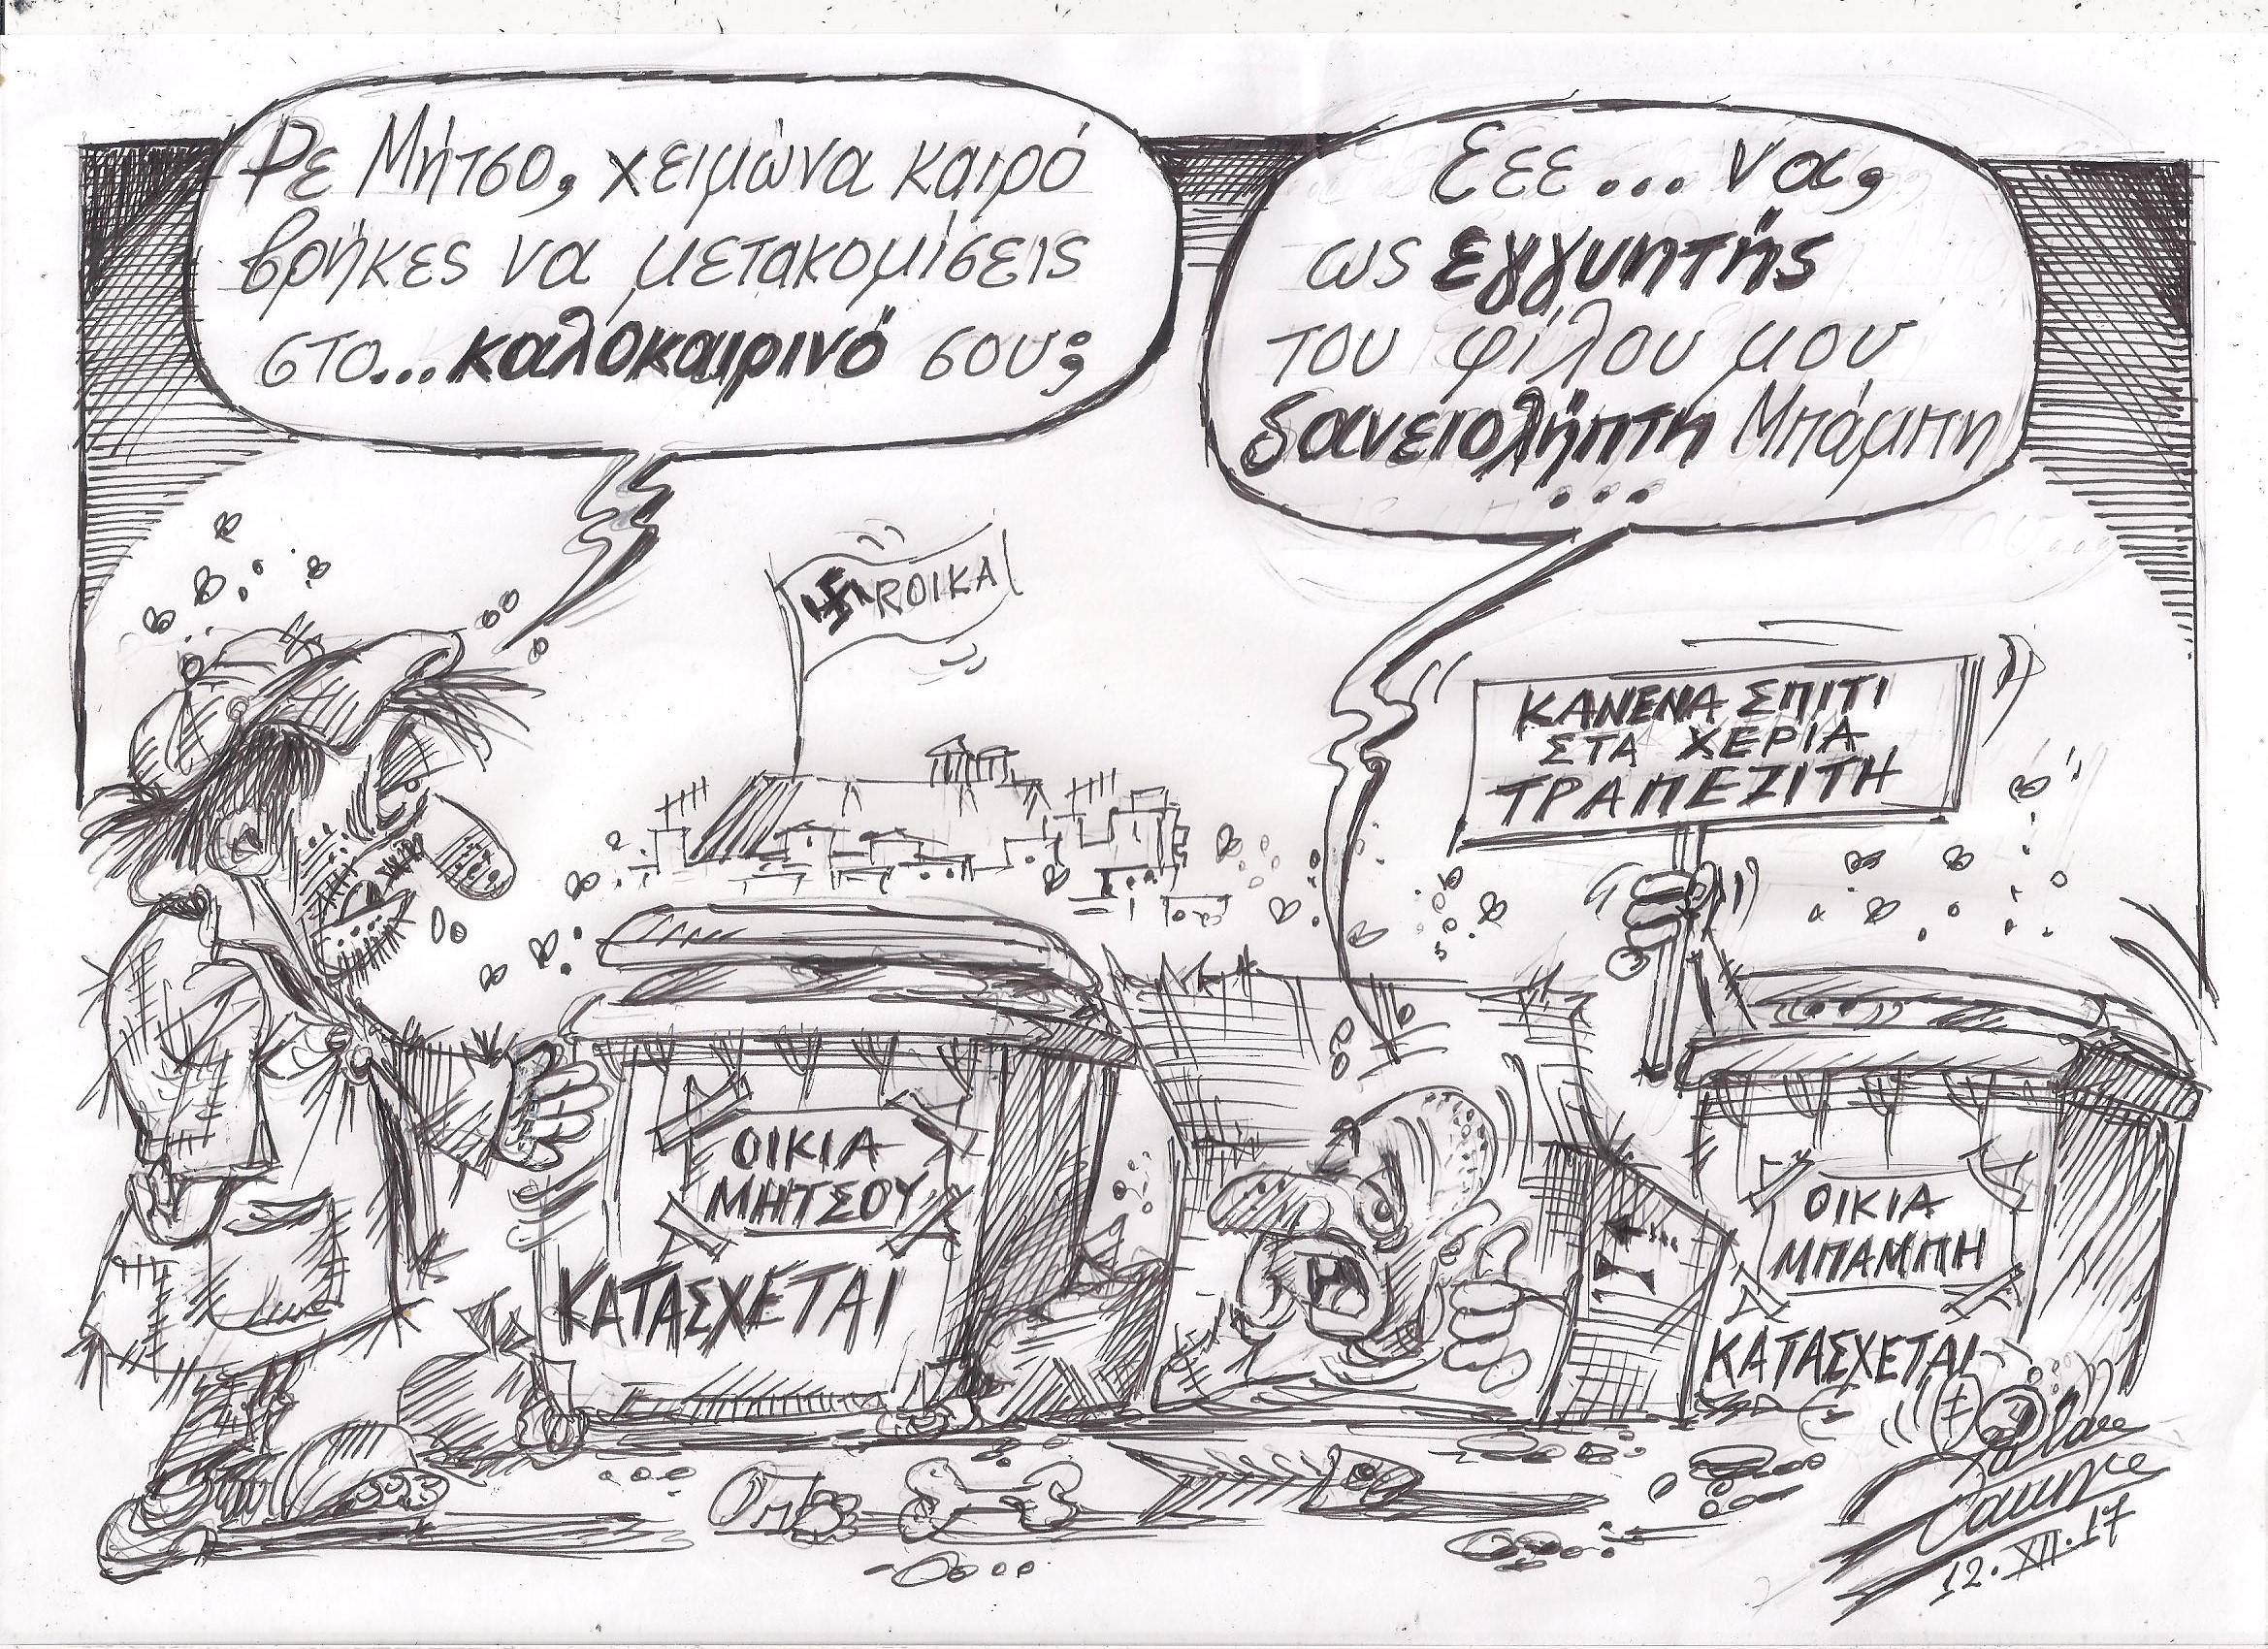 Ρε Μήτσο, χειμώνα καιρό
βρήκες να μετακομίσεις
στο... καλοκαιρινό σου;
Εεε... να,
ως εγγυητής
του φίλου μου
δανειολήπτη Μπάμπη
...
ROIKA
ΚΑΝΕΝΑ ΣΠΙΤΙ
ΣΤΑ ΧΕΡΙΑ
ΤΡΑΠΕΖΙΤΗ
ΟΙΚΙΑ
ΜΗΤΣΟΥ
ΚΑΤΑΣΧΕΤΑΙ
ΟΙΚΙΑ
ΜΠΑΜΠΗ
ΚΑΤΑΣΧΕΤΑΙ
12.XII.17